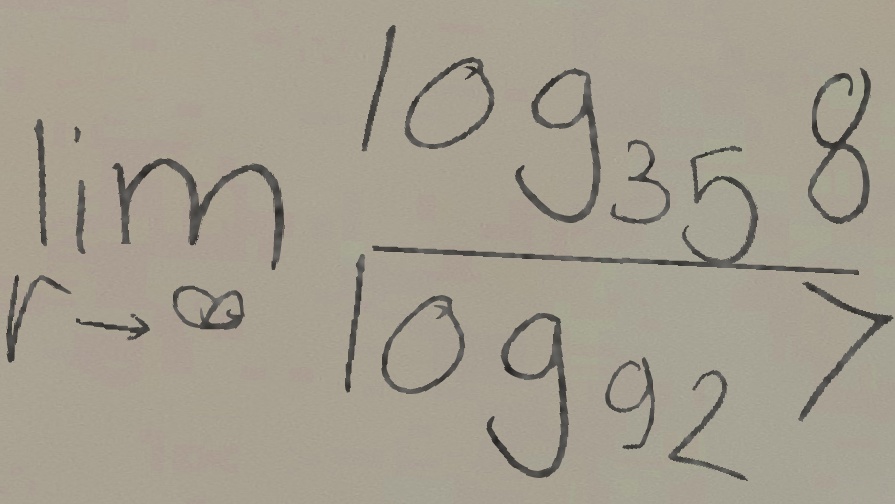 \lim_{r \to \infty} \frac{\log_{35} 8}{\log_{92} 7}